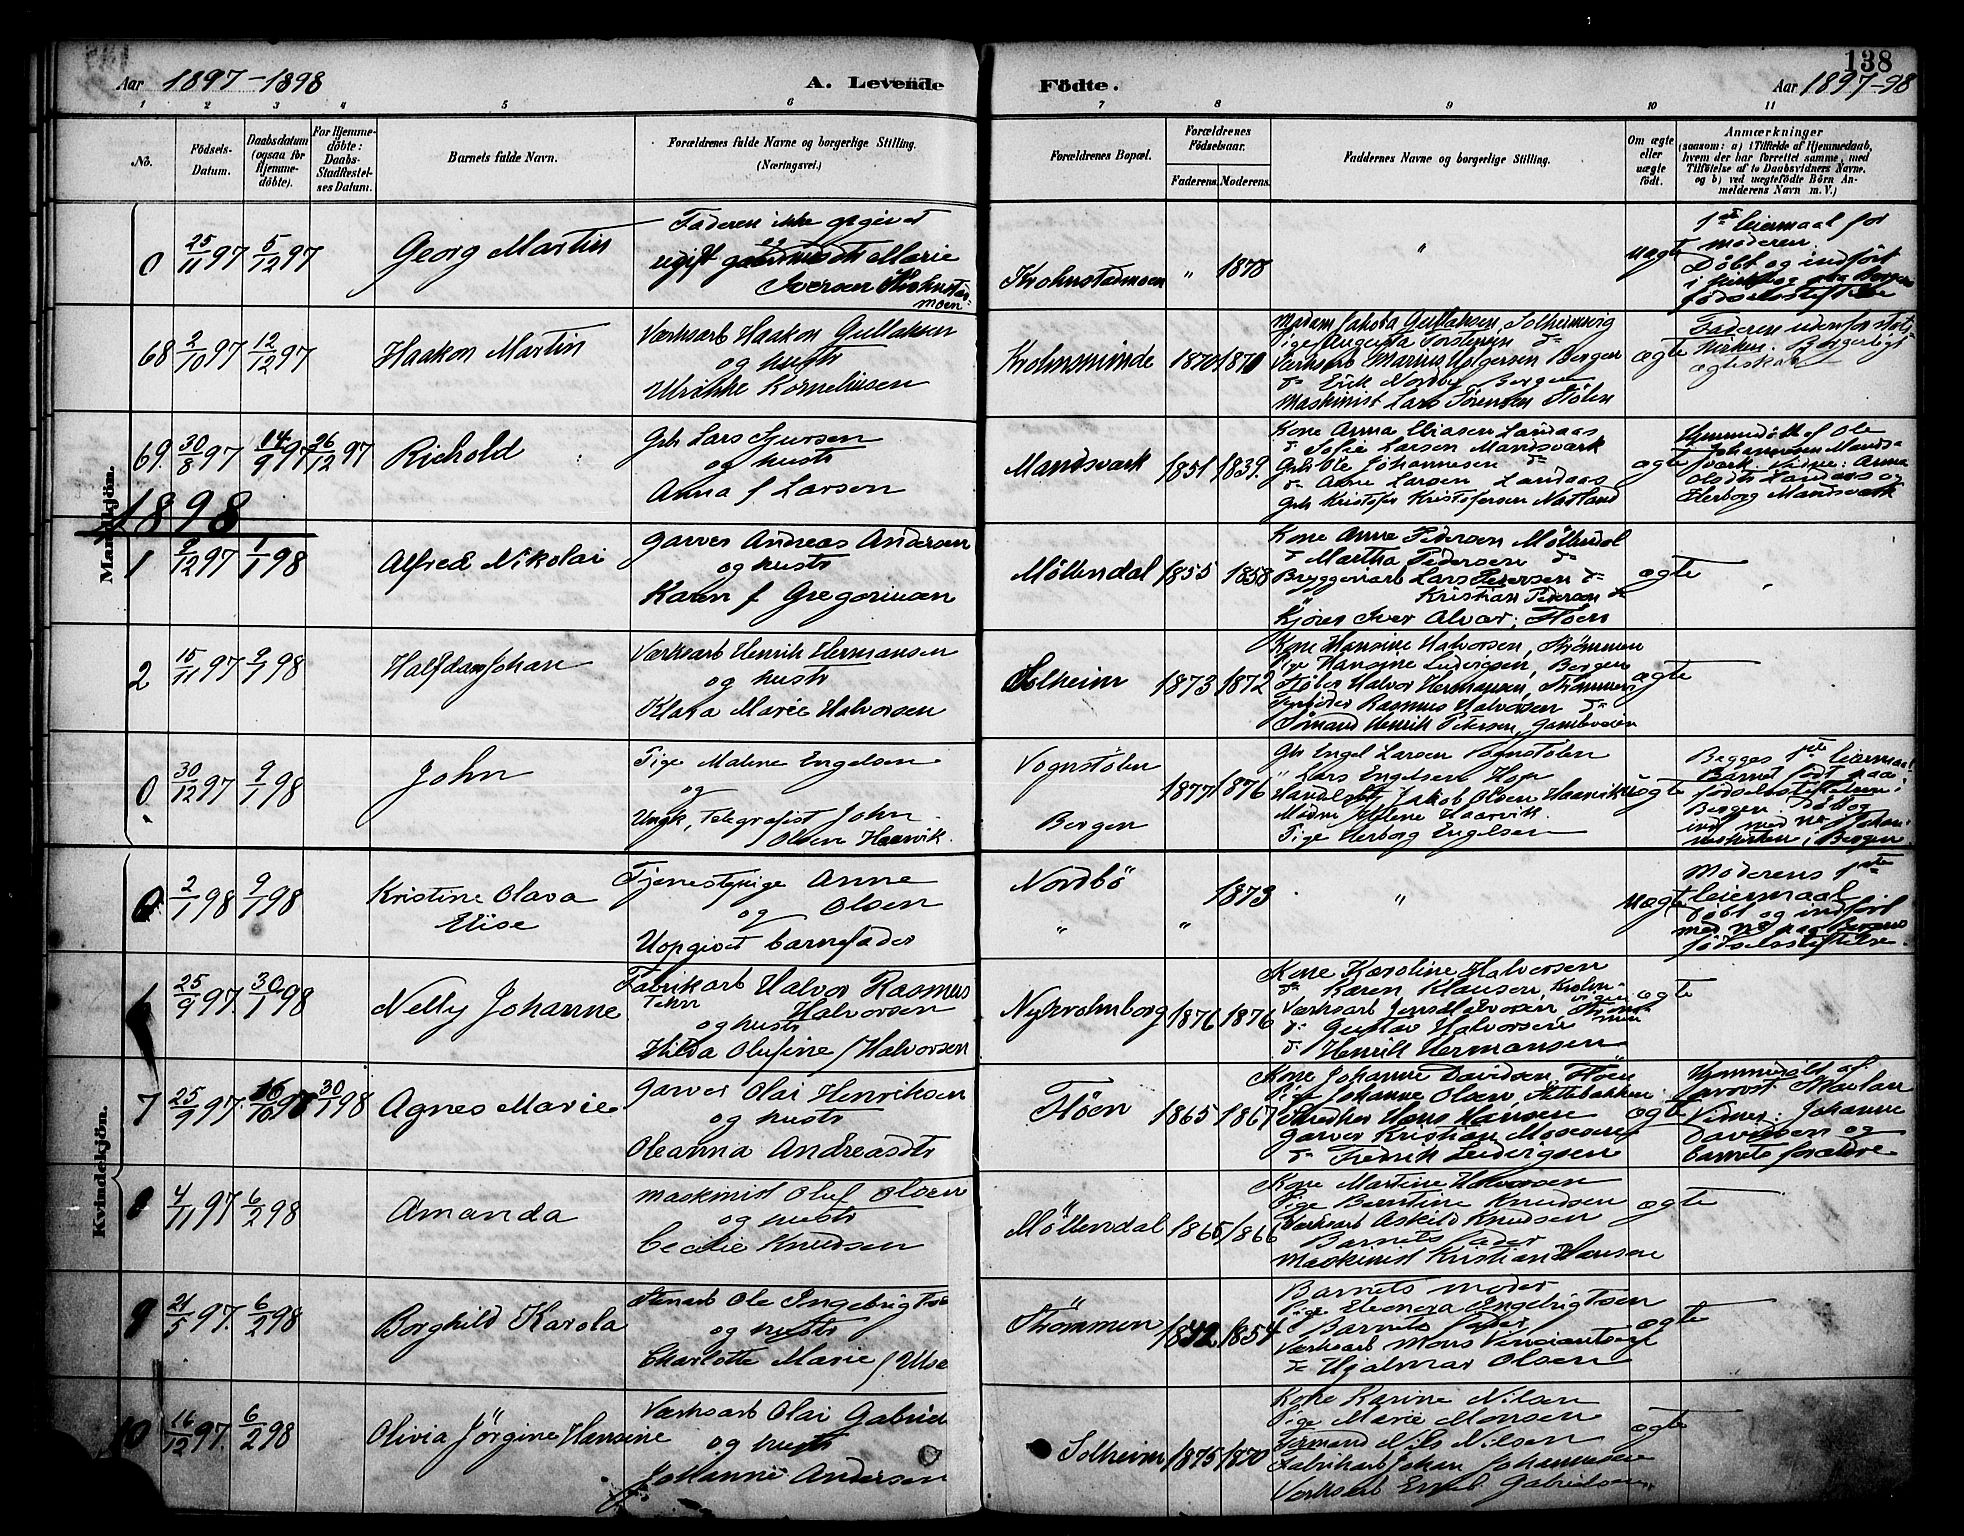 138
Aar 1897-1898 A. Levende Födte. Aar 1897-98
1 2 3 4 5 6 7 8 9 10 11
No. Födsels-Datum. Daabsdatum (ogsaa for Hjemme-döbte). For Hjemme-döbte: Daabs-Stadfæstel-ses Datum. Barnets fulde Navn. Forældrenes fulde Navne og borgerlige Stilling. (Næringsvei.) Forældrenes Bopæl. Forældrenes Födselsaar. Faderens. Moderens. Faddernes Navne og borgerlige Stilling. Om ægte eller uægte födt. Anmærkninger (saasom: a) i Tilfælde af Hjemmedaab, hvem der har forrettet samme, med Tilföielse af to Daabsvidners Navne. og b) ved uægtefödte Börn An-melderens Navn m. V.)
Mandkjön.
0 25/11 97 5/12 97 Georg Martin
Faderen ikke opgivet
og
ugift Marie
Iversen Krohnsted-
moen
Krohnstedmoen " 1878 " uægte
1ste leiermaal for
moderen.
Döbt og indfört
i
födselsstiftelse
68 2/10 97 12/12 97 Haakon Martin
Værksarb Haakon Gullaksen
og hustr
Ulrikke Korneliusen
Krohnsminde 1870 1870
Madam Jakoba Gullaksen, Solheimsvig
Pige Augusta Torstensen do
Værksarb Marius Holgersen Bergen
do Erik Nordby Bergen
Maskinist Lars Sörensen Stölen
ægte
Faderen udenfor stats
kirken. Borgerligt
ægteskab
69. 30/8 97 14/9 97 26/12 97 Richold
Gbr Lars Sjursen
og hustr
Anna f Larsen
Mandsværk 1851 1839.
Kone Anna Eliasen Landaas
do Sofie Larsen Mandsværk
Gbr Ole Johannesen do
do Arne Larsen Landaas
Gbr Kristofer Kristofersen Natland
ægte
Hjemmedöbt af Ole
Johannesen Mands-
værk Vidner: Anna
Landaas og
Herborg Mandsværk
1898
1 9/12 97 1/1 98 Alfred Nikolai
Garver Andreas Andersen
og hustr
Karen f Gregoriusen
Möllendal 1855 1858
Kone Anne Pedersen Möllendal
do Martha Pedersen do
Bryggeriarb Lars Petersen do
Kristian Pedersen do
Kjörer Iver Alvar, Flöen
ægte "
2 15/11 97 9/1 98 Halfdan Johan
Værksarb Henrik Hermansen
og hustr
Klara Marie Halvorsen
Solheim 1873 1872
Kone Hansine Halvorsen, Strömmen
Pige Hansine Ludvigsen, Bergen
Halvor Hermansen, Strömmen
Rasmus Halvorsen do
Sömand Henrik Petersen,
ægte
0 30/12 97 9/1 98 John
Pige Malene Engelsen
og
Ungk, Telegrafist John
Olsen Haarvik
Vognstölen
Bergen
1877 1876
Gbr Engel Larsen Vognstölen
" Lars Engelsen Hop
Jakob Olsen Haarvik
Madm Helene Haarvik.
Pige Herborg Engelsen
uægte
Begges 1ste leiermaal
Barnet födt paa
födselsstiftelsen i
Bergen. Döbt og
ind med No i Johan-
neskirken i Bergen
Kvindekjön.
0 2/1 98 9/1 98 Kristine Olava
Elise
Tjenestepige Anne
og Olsen
Uopgivet barnefader
Nordbö
" " 1873 " uægte
Moderens 1ste
leiermaal
Döbt og indfört
med No paa Bergens
födselsstiftelse.
6 25/9 97. 30/1 98 Nelly Johanne
Fabrikarb Halvor Rasmus
Halvorsen
og hustr
Hilda Olufine f Halvorsen
Nykrohnborg 1876 1876
Kone Karoline Halvorsen
do Karen Klausen
Værksarb Jens Halvorsen,
do Gustav Halvorsen
do Henrik Hermansen
ægte
7 25/9 97. 16/10 97 30/1 98 Agnes Marie
Garver Olai Henriksen
og hustr
Oleanna Andreasdtr
Flöen 1865 1867
Kone Johanne Davidsen, Flöen
Pige Johanne Olsen
Snedker Hans Hansen
Garver Kristian Mosesen
do Fredrik Ludvigsen
ægte
Hjemmedöbt af
provst Maclan
Vidner: Johanne
Davidsen og
barnets forældre
8 4/11 97 6/2 98 Amanda
Maskinist Oluf Olsen
og hustr
Cecilie Knudsen
Möllendal 1865 1866
Kone Martine Halvorsen
Pige Berntine Knudsen
Værksarb Askild Knudsen
Barnets fader
Maskinist Kristian Hansen
ægte
9 21/5 97. 6/2 98 Borghild Karola
Stenarb Ole Ingebrigts
og hustr
Charlotte Marie f
Strömmen 1842 1854
Barnets moder
Pige Eleonora Engebrigtsen
Barnets fader
Værksarb Mons
do Hjalmar Olsen
ægte
10 16/12 97. 6/2 98 Olivia Jörgine Hansine
Værksarb Olai Gabriel
og hustr
Johanne Andersen
Solheim 1875 1870
Kone Karine Nilsen
Pige Marie Monsen
Nils Nilsen
Fabrikarb Johan Johannesen
Værksarb Gabrielsen
ægte